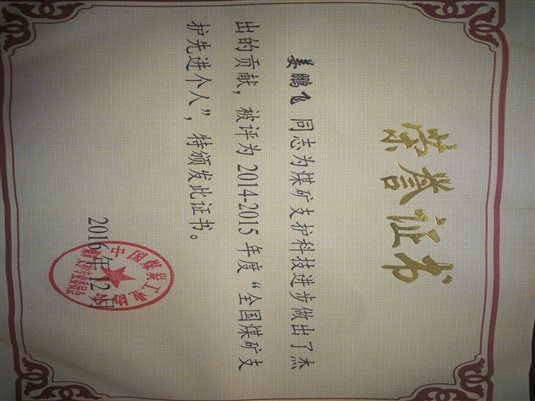 荣誉证书
姜鹏飞 同志为煤矿支护科技进步做出了杰
出的贡献，被评为 2014-2015 年度“全国煤矿支
护先进个人”，特颁发此证书。
中国煤炭工业
2016年12月